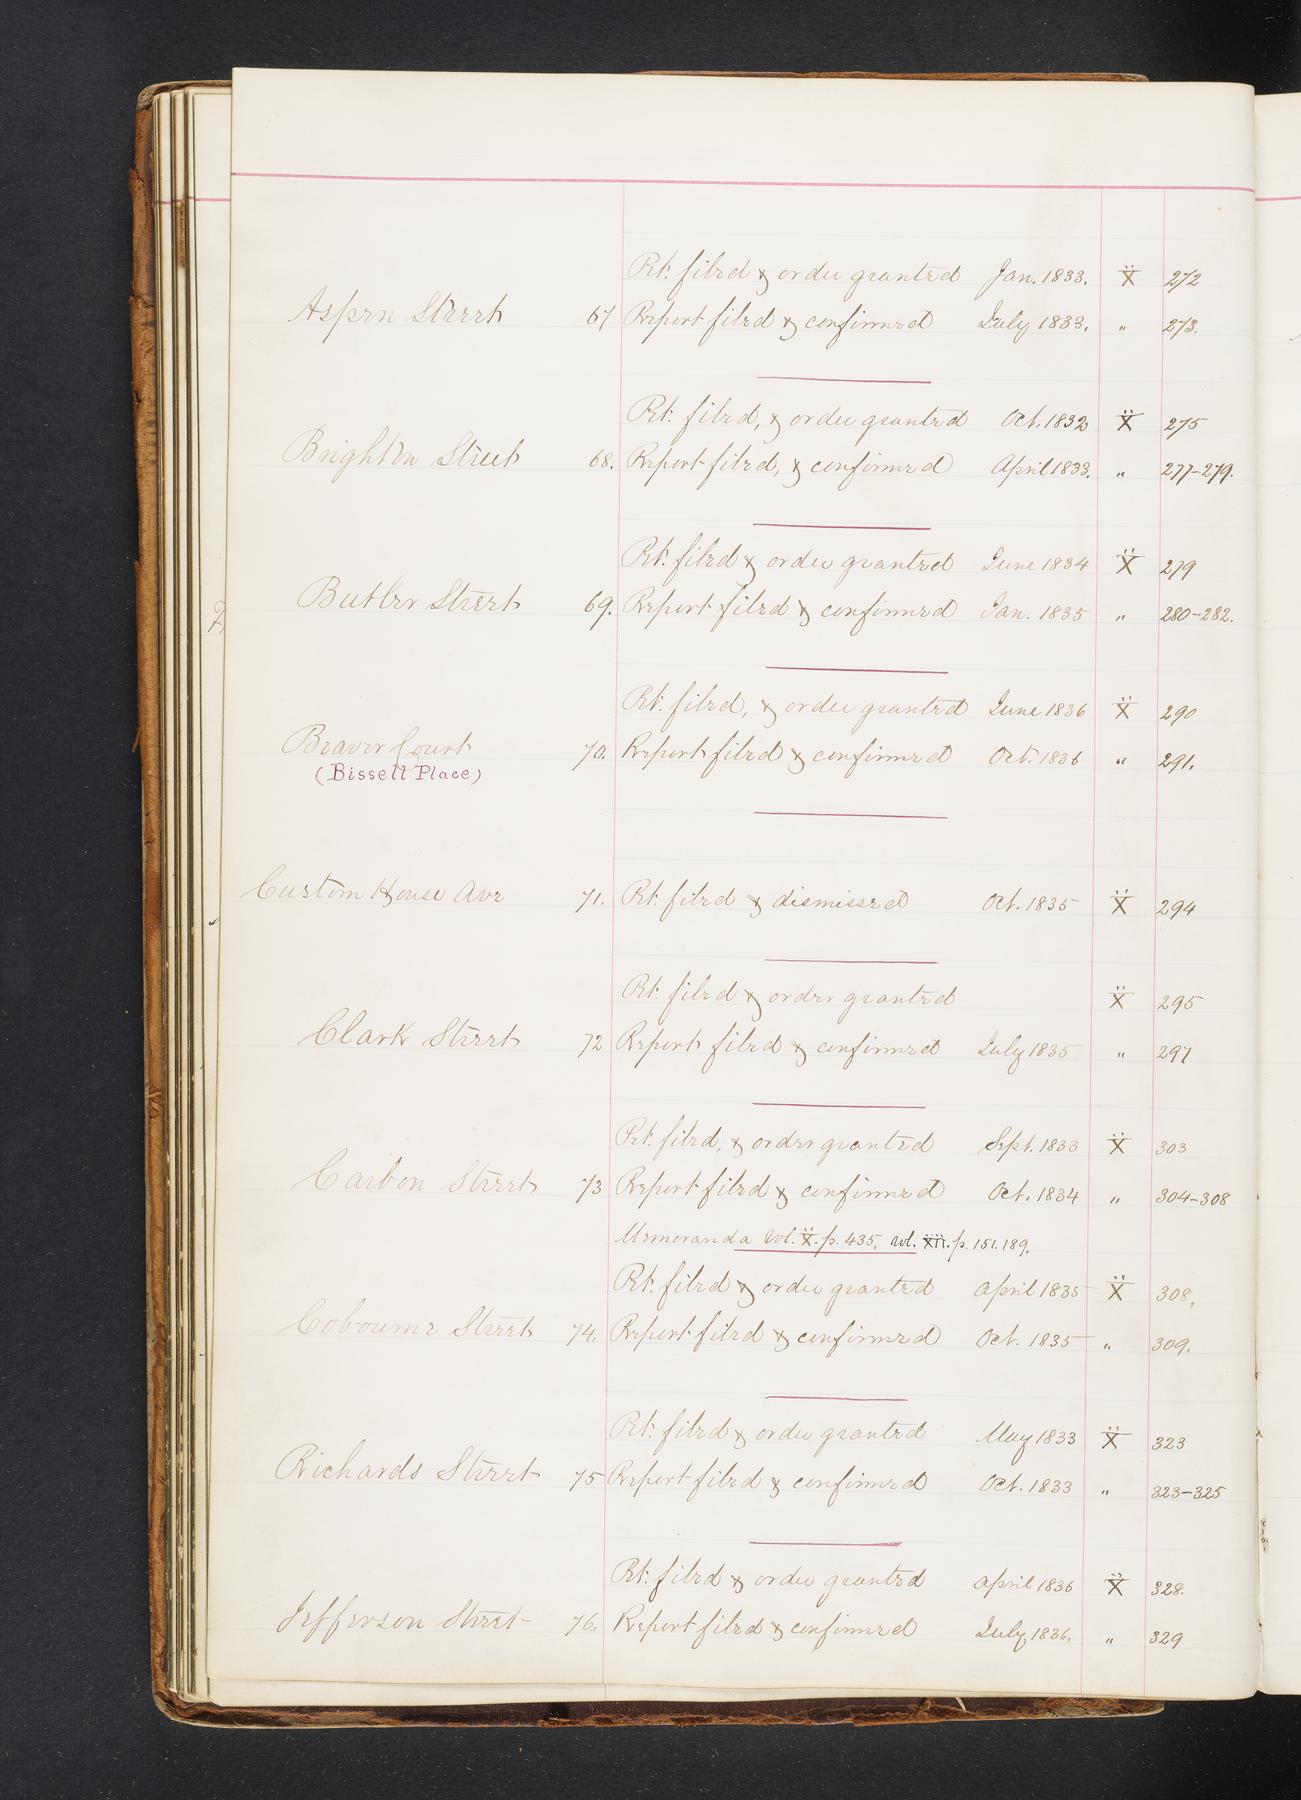 Pet. filed & order granted Jan. 1833. X 272
Aspen Street 67 Report filed & confirmed July 1833. " 273.
Pet. filed, & order granted Oct. 1832 X 275
Brighton Street 68. Report filed, & confirmed April 1833. " 277-279.
Pet. filed & order granted June 1834 X 279
Butler Street 69. Report filed & confirmed Jan. 1835 " 280-282.
Pet. filed, & order granted June 1836 X 290
Beaver Court 70. Report filed & confirmed Oct. 1836 " 291.
(Bissell Place)
Custom House Ave 71. Pet. filed & dismissed Oct. 1835 X 294
Pet. filed & order granted X 295
Clark Street 72 Report filed & confirmed July 1835 " 297
Pet. filed, & order granted Sept. 1833 X 303
Carbon Street 73 Report filed & confirmed Oct. 1834 " 304-308
Memoranda vol. X. p. 435, vol. XII. p. 151. 189.
Pet. filed & order granted April 1835 X 308.
Cobourne Street 74. Report filed & confirmed Oct. 1835 " 309.
Pet. filed & order granted May 1833 X 323
Richards Street 75 Report filed & confirmed Oct. 1833 " 323-325
Pet. filed & order granted April 1836 X 328.
Jefferson Street 76. Report filed & confirmed July 1836. " 329